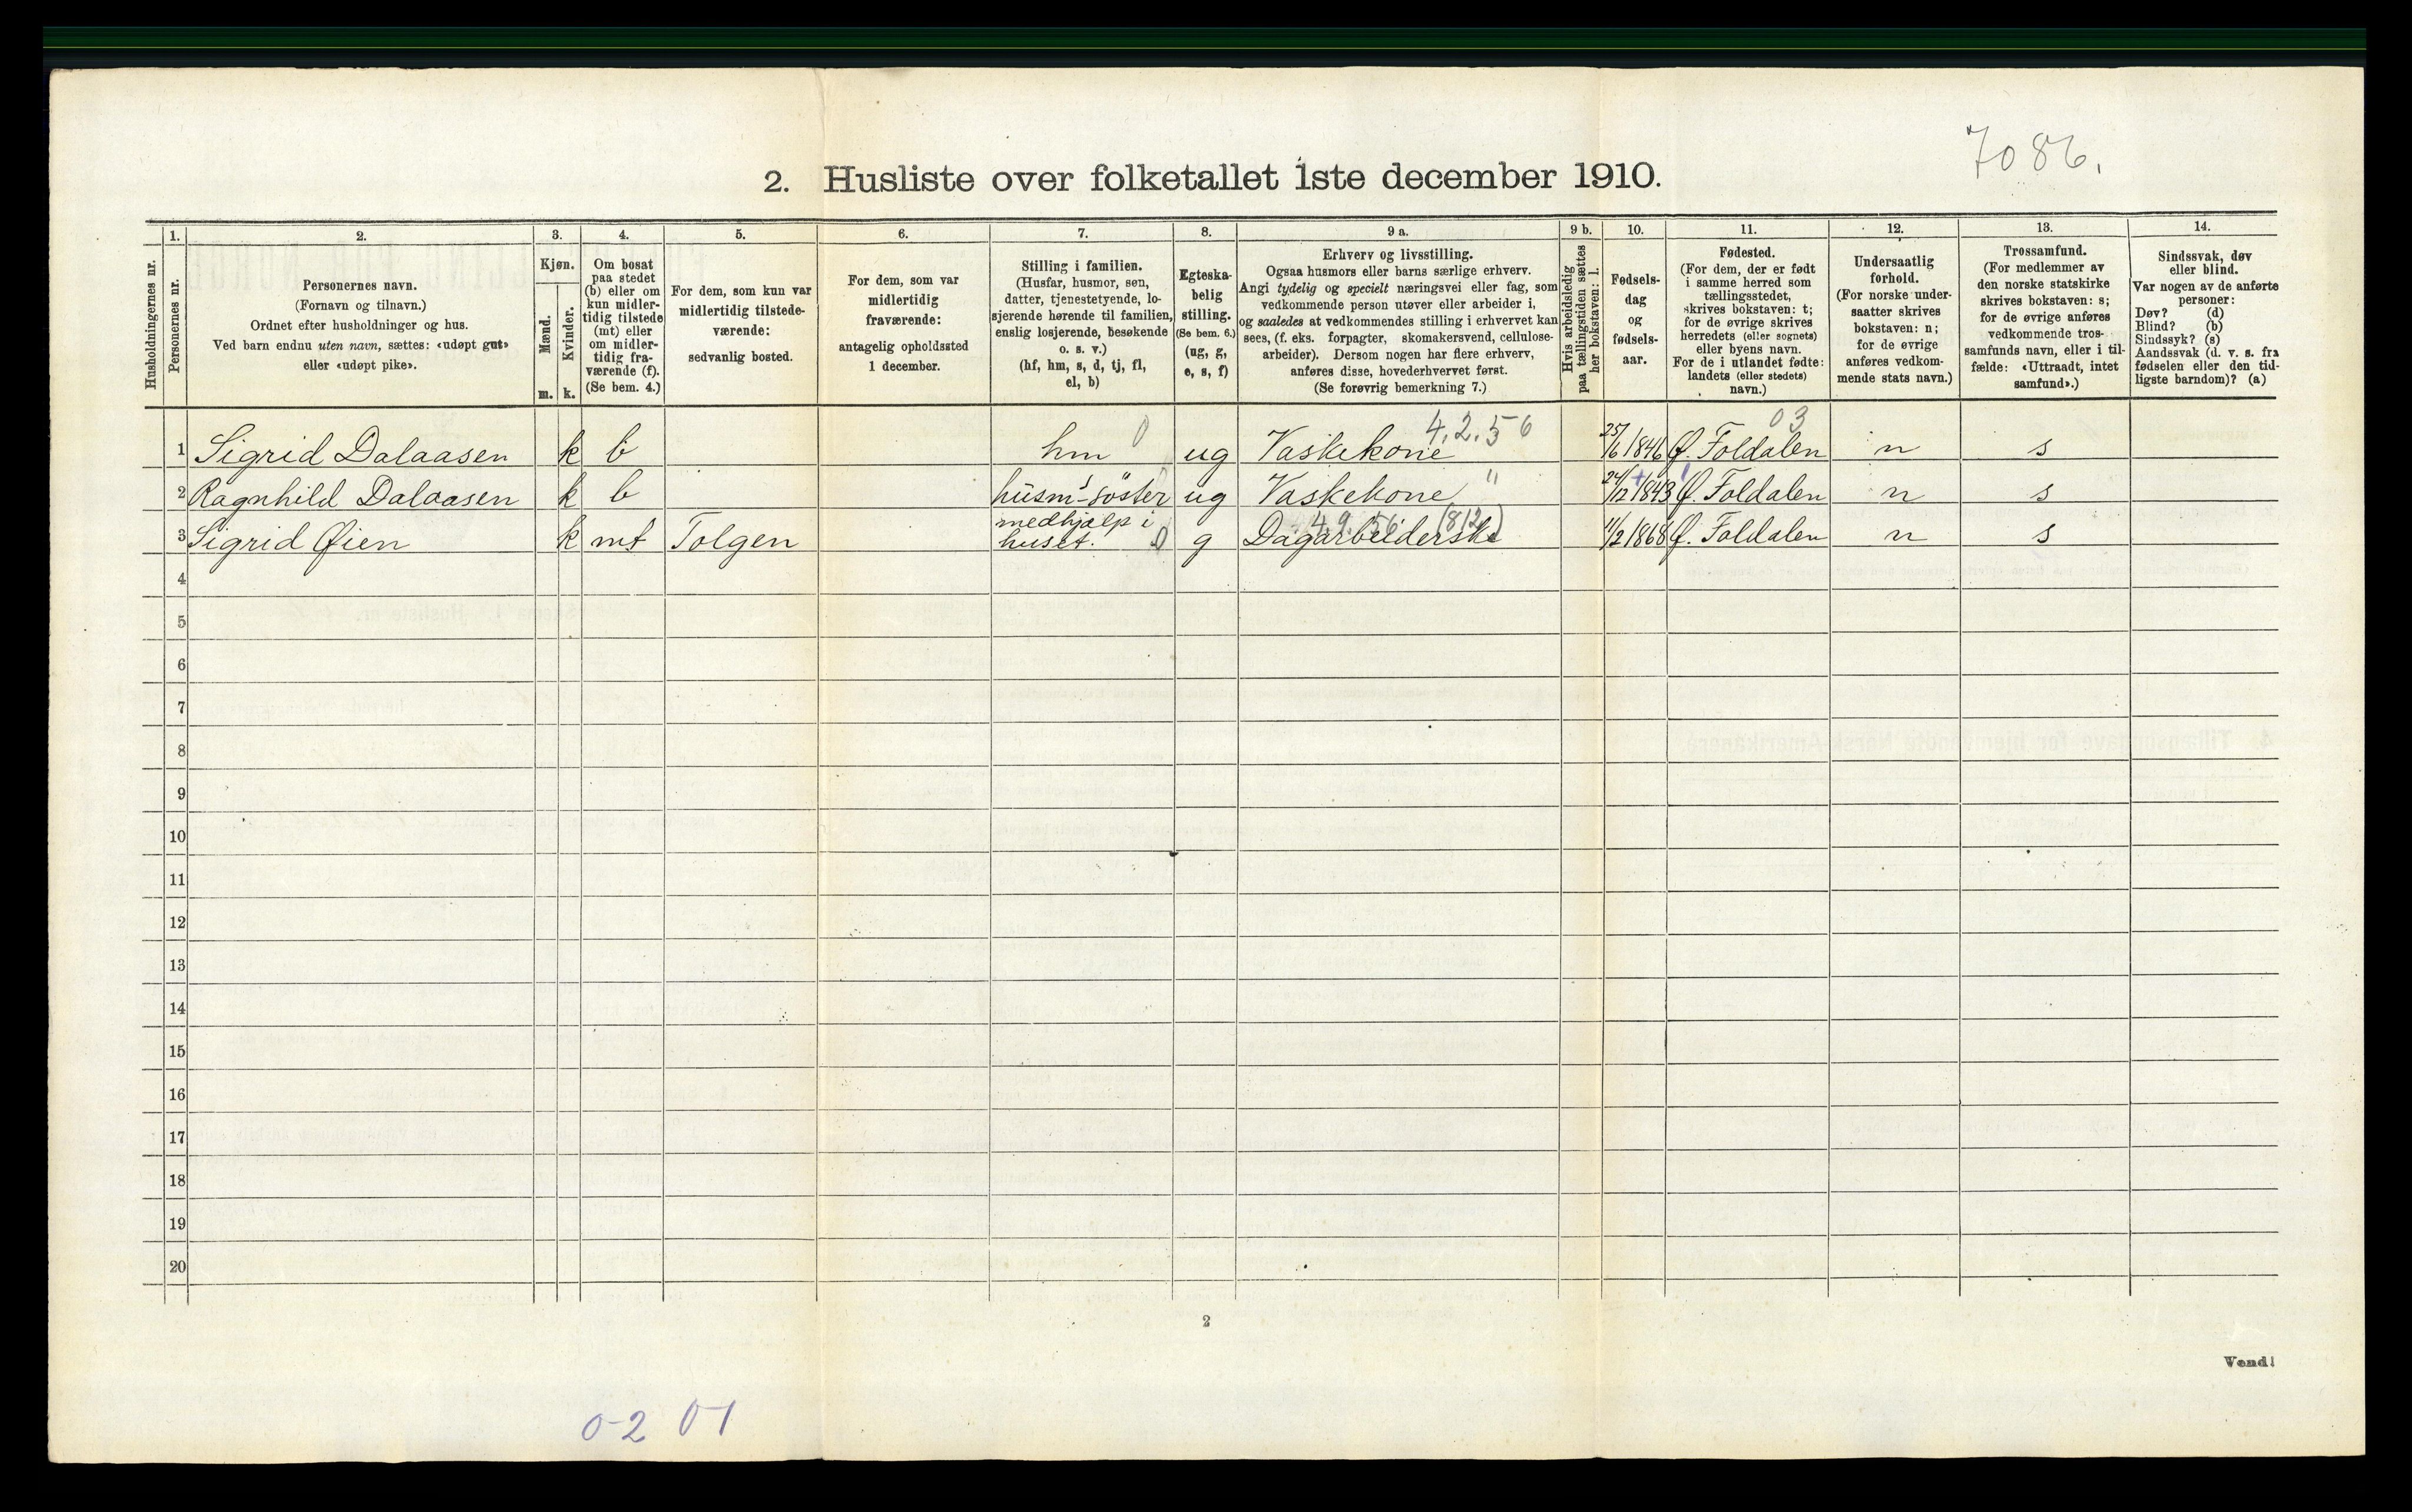 7086.
2. Husliste over folketallet 1ste december 1910.
Husholdningernes nr.
1.
Personernes nr.
2.
Personernes navn.
(Fornavn og tilnavn.)
Ordnet efter husholdninger og hus.
Ved barn endnu uten navn, sættes: «udøpt gut»
eller «udøpt pike».
3.
Kjøn.
Mænd.
m.
Kvinder.
k.
4.
Om bosat
paa stedet
(b) eller om
kun midler-
tidig tilstede
(mt) eller
om midler-
tidig fra-
værende (f).
(Se bem. 4.)
5.
For dem, som kun var
midlertidig tilstede-
værende:
sedvanlig bosted.
6.
For dem, som var
midlertidig
fraværende:
antagelig opholdssted
1 december.
7.
Stilling i familien.
(Husfar, husmor, søn,
datter, tjenestetyende, lo-
sjerende hørende til familien,
enslig losjerende, besøkende
o. s. v.)
(hf, hm, s, d, tj, fl,
el, b)
8.
Egteska-
belig
stilling.
(Se bem. 6.)
(ug, g,
e, s, f)
9 a.
Erhverv og livsstilling.
Ogsaa husmors eller barns særlige erhverv.
Angi tydelig og specielt næringsvei eller fag, som
vedkommende person utøver eller arbeider i,
og saaledes at vedkommendes stilling i erhvervet kan
sees, (f. eks. forpagter, skomakersvend, cellulose-
arbeider). Dersom nogen har flere erhverv,
anføres disse, hovederhvervet først.
(Se forøvrig bemerkning 7.)
9 b.
Hvis arbeidsledig
paa tællingstiden sættes
her bokstaven: l.
10.
Fødsels-
dag
og
fødsels-
aar.
11.
Fødested.
(For dem, der er født
i samme herred som
tællingsstedet,
skrives bokstaven: t;
for de øvrige skrives
herredets (eller sognets)
eller byens navn.
For de i utlandet fødte:
landets (eller stedets)
navn.)
12.
Undersaatlig
forhold.
(For norske under-
saatter skrives
bokstaven: n;
for de øvrige
anføres vedkom-
mende stats navn.)
13.
Trossamfund.
(For medlemmer av
den norske statskirke
skrives bokstaven: s;
for de øvrige anføres
vedkommende tros-
samfunds navn, eller i til-
fælde: «Uttraadt, intet
samfund».)
14.
Sindssvak, døv
eller blind.
Var nogen av de anførte
personer:
Døv? (d)
Blind? (b)
Sindssyk? (s)
Aandssvak (d. v. s. fra
fødselen eller den tid-
ligste barndom)? (a)
0 4.2.56 03
1 Sigrid Dalaasen k b hm ug Vaskekone 25/6 1846 Ø. Foldalen n s
2 Ragnhild Dalaasen k b husm's-söster ug Vaskekone " 24/12 1843 Ø. Foldalen n s
medhjælp i 49.56 (812)
3 Sigrid Øien k mt Tolgen huset. 0 g Dagarbeiderske 11/2 1868 Ø. Foldalen n s
4
5
6
7
8
9
10
11
12
13
14
15
16
17
18
19
20
2
Vend!
0-2 0-1